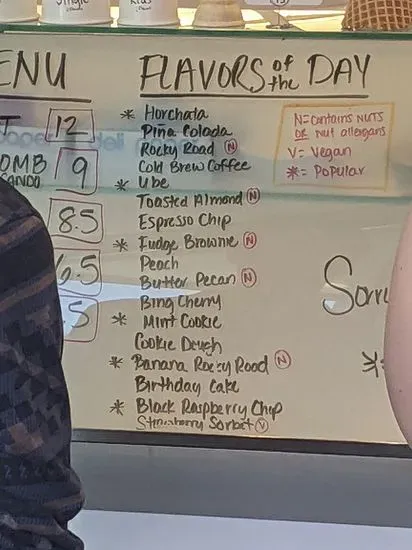 Single
Kids
ENU
FLAVORS of the DAY
T 12
OMB 9
8.5
6.5
.5
* Horchata
Piña Colada
Rocky Road N
Cold Brew Coffee
* Ube
Toasted Almond N
Espresso Chip
* Fudge Brownie N
Peach
Butter Pecan N
Bing Cherry
* Mint Cookie
Cookie Dough
* Banana Rocky Road N
Birthday Cake
* Black Raspberry Chip
Strawberry Sorbet V
N=Contains NUTS
OR Nut allergens
V= Vegan
*= Popular
Sorr
*